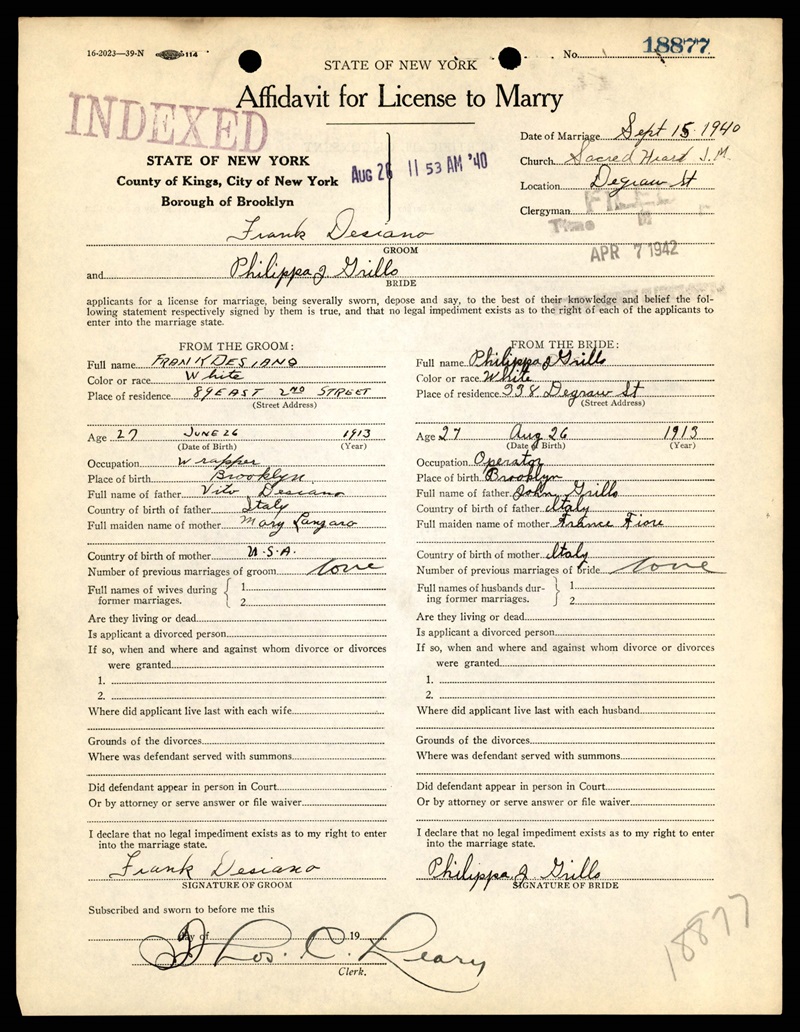 16-2023—39-N 114
STATE OF NEW YORK
No. 18877
Affidavit for License to Marry
INDEXED
STATE OF NEW YORK
County of Kings, City of New York
Borough of Brooklyn
AUG 26 11 53 AM '40
Date of Marriage Sept 15 1940
Church Sacred Heart J. M.
Location Degraw St
Clergyman
FILED
Time M
APR 7 1942
Frank Desiano
GROOM
and Philippa J. Grillo
BRIDE
applicants for a license for marriage, being severally sworn, depose and say, to the best of their knowledge and belief the fol-
lowing statement respectively signed by them is true, and that no legal impediment exists as to the right of each of the applicants to
enter into the marriage state.
FROM THE GROOM:
Full name FRANK DESIANO
Color or race White
Place of residence 89 EAST 2ND STREET
(Street Address)
Age 27 JUNE 26 1913
(Date of Birth) (Year)
Occupation Wrapper
Place of birth Brooklyn
Full name of father Vito Desiano
Country of birth of father Italy
Full maiden name of mother Mary Lanzaro
Country of birth of mother U.S.A.
Number of previous marriages of groom none
Full names of wives during former marriages. 1
2
Are they living or dead
Is applicant a divorced person
If so, when and where and against whom divorce or divorces
were granted
1.
2.
Where did applicant live last with each wife
Grounds of the divorces
Where was defendant served with summons
Did defendant appear in person in Court
Or by attorney or serve answer or file waiver
I declare that no legal impediment exists as to my right to enter
into the marriage state.
Frank Desiano
SIGNATURE OF GROOM
FROM THE BRIDE:
Full name Philippa J Grillo
Color or race White
Place of residence 338 Degraw St
(Street Address)
Age 27 Aug 26 1913
(Date of Birth) (Year)
Occupation Operator
Place of birth Brooklyn
Full name of father John Grillo
Country of birth of father Italy
Full maiden name of mother France Fiore
Country of birth of mother Italy
Number of previous marriages of bride none
Full names of husbands dur-
ing former marriages. 1
2
Are they living or dead
Is applicant a divorced person
If so, when and where and against whom divorce or divorces
were granted
1.
2.
Where did applicant live last with each husband
Grounds of the divorces
Where was defendant served with summons
Did defendant appear in person in Court
Or by attorney or serve answer or file waiver
I declare that no legal impediment exists as to my right to enter
into the marriage state.
Philippa J. Grillo
SIGNATURE OF BRIDE
Subscribed and sworn to before me this
day of 19
Thos. C. Leary
Clerk.
18877